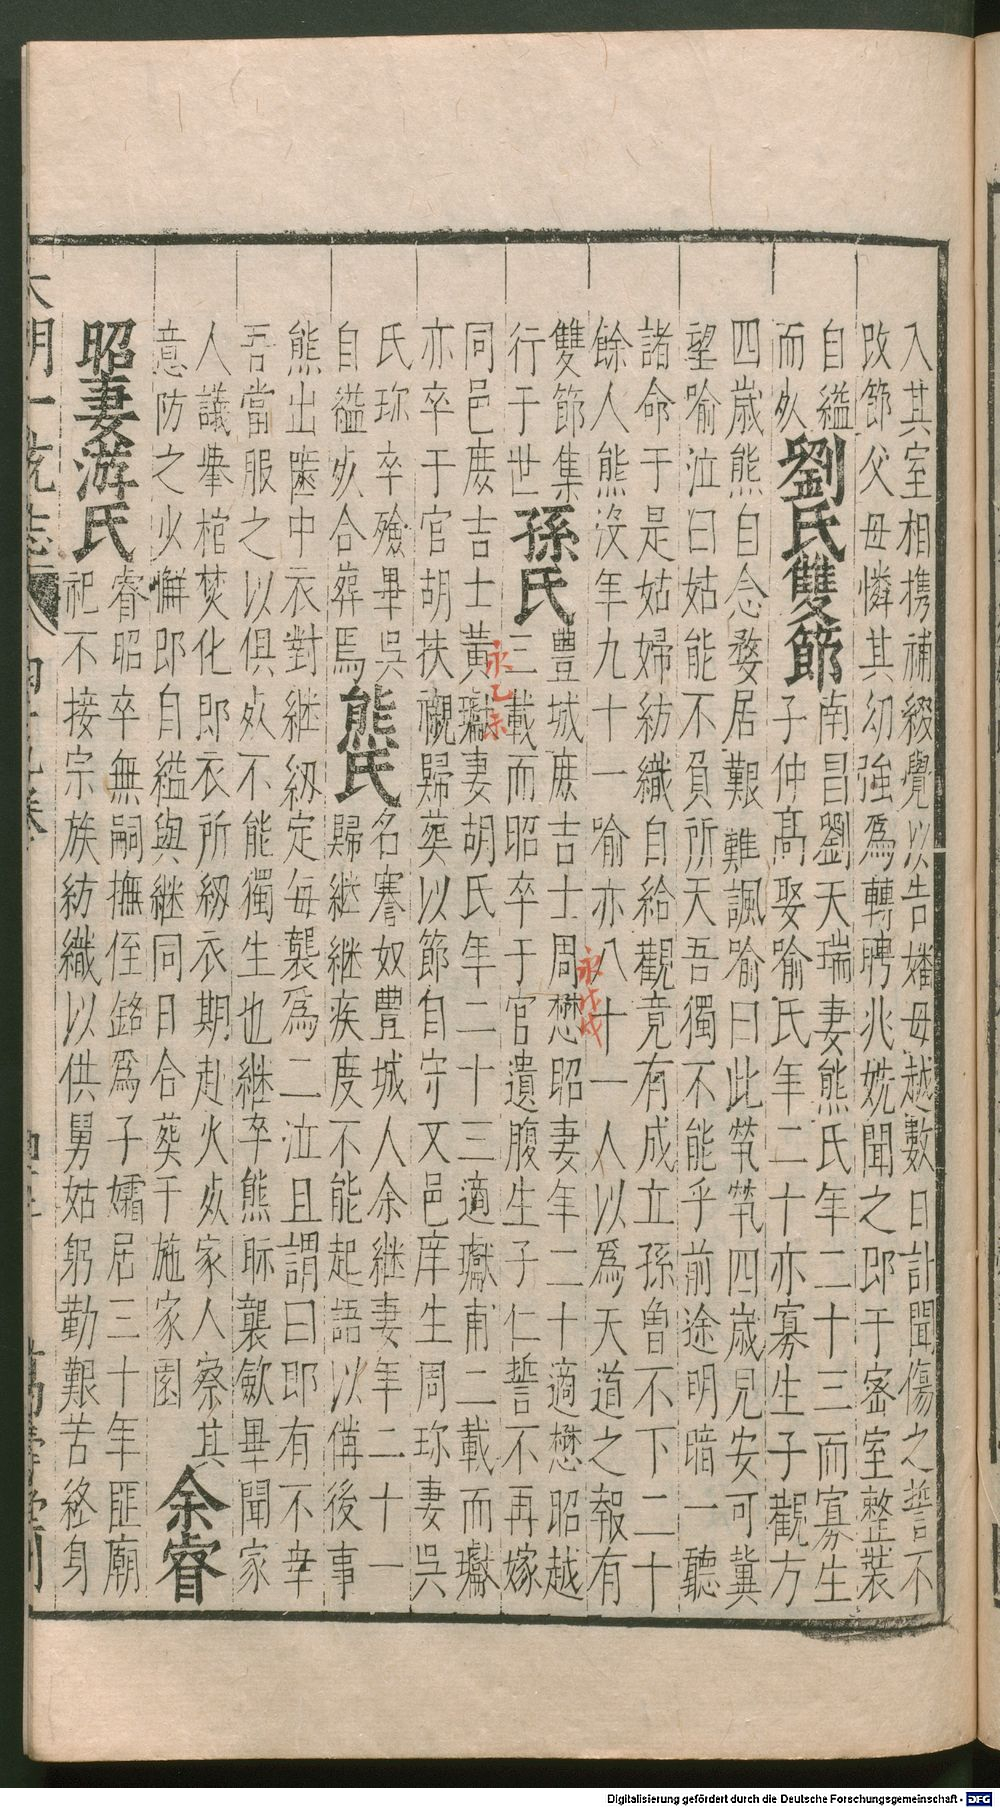 入其室相携補綴覺以告嬸母越數日計聞傷之誓不
改節父母憐其幼強爲轉聘兆姺聞之即于宻室整装
自縊
而死
劉氏雙節
南昌劉天瑞妻熊氏年二十三而寡生
子仲髙娶喻氏年二十亦寡生子觀方
四歳熊自念嫠居艱難諷喻曰此煢煢四歳見安可冀
望喻泣曰姑能不負所天吾獨不能乎前途明暗一聽
諸命于是姑婦紡織自給觀竟有成立孫曽不下二十
餘人熊沒年九十一喻亦八十一人以爲天道之報有
雙節集
行于世
孫氏
豐城庻吉士周懋昭妻年二十適懋昭越
永戊戌
三載而昭卒于官遺腹生子仁誓不再嫁
永乙未
同邑庻吉士黃瓛妻胡氏年二十三適瓛甫二載而瓛
亦卒于官胡扶櫬歸葬以節自守又邑庠生周珎妻吳
氏珎卒殮畢吳
自縊死合葬焉
熊氏
名骞奴豐城人余継妻年二十一
歸継継疾度不能起語以偹後事
熊出匳中衣對継紉定每襲爲二泣且謂曰即有不幸
吾當服之以俱死不能獨生也継卒熊眎襲歛畢聞家
人議轝棺焚化即衣所紉衣期赴火死家人察其
意防之少懈即自縊與継同日合葬于施家園
余睿
昭妻游氏
睿昭卒無嗣撫侄鉻爲子孀居三十年匪廟
祀不接宗族紡織以供舅姑躬勤艱苦終身
大明一統志 四十九卷 萬壽堂刊
Digitalisierung gefördert durch die Deutsche Forschungsgemeinschaft - DFG